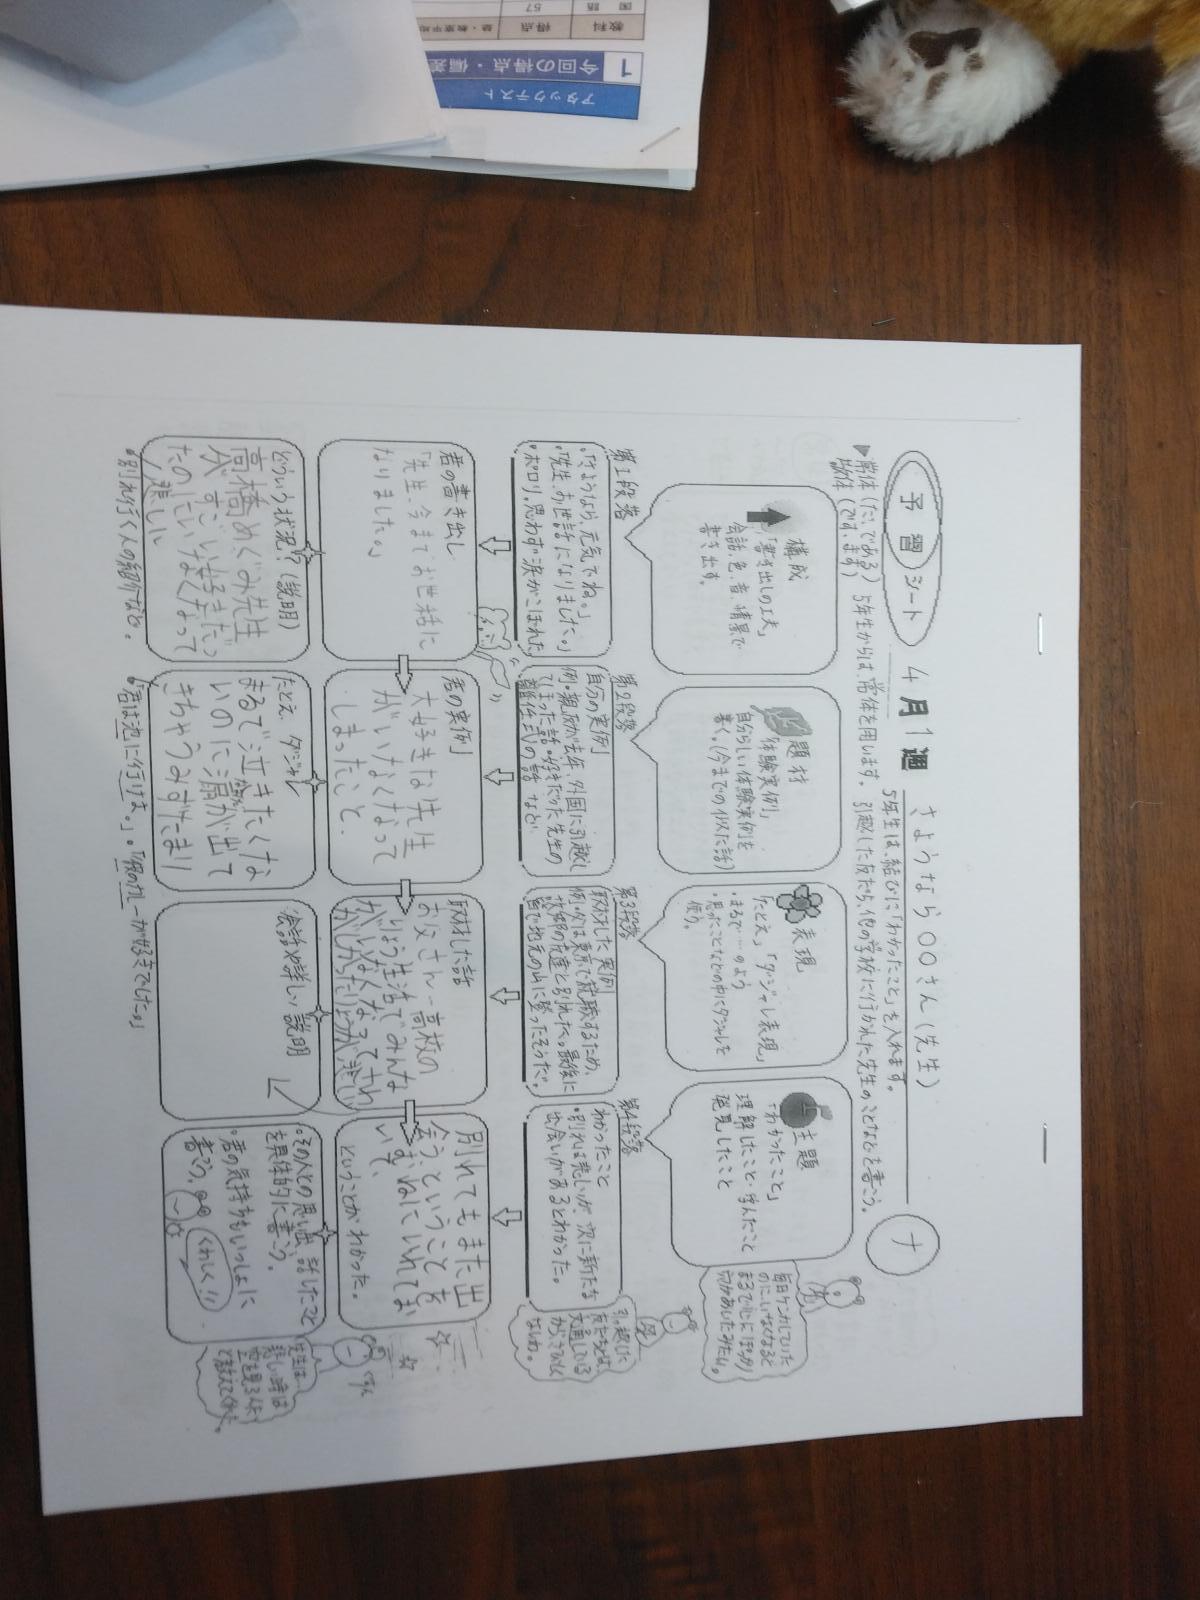 予習シート 4月1週 さようなら〇〇さん(先生) ナ
▶常体(だ、である) 5年生からは、常体を用います。
敬体(です、ます)
5年生は、結びに「わかったこと」を入れます。
引越した友だち、他の学校に行かれた先生のことなどを書こう。
構成
「書き出しの工夫」
会話、色、音、情景で
書き出す。
題材
「体験実例」
自分らしい体験実例を
書く。(今までの似た話)
表現
「たとえ」「ダジャレ表現」
・まるで……のよう
・思ったことなどの中にダジャレを
使う。
主題
「わかったこと」
理解したこと・学んだこと
発見したこと
毎日ケンカしていた
のに、いなくなると
まるで心にぽっかり
穴があいたみたい。
第1段落
・「さようなら、元気でね。」
・「先生、お世話になりました。」
・ポロリ。思わず涙がこぼれた
第2段落
自分の実例
例・親友が去年、外国に引越し
てしまった話・好きだった先生の
離任式の話 など
第3段落
取材した実例
例・父は東京で就職するため、
故郷の友達と別れた。最後に
皆で地元の山に登ったそうだ。
第4段落
わかったこと
・別れは悲しいが、次に新たな
出会いがあるとわかった。
引越した
友だちとは、
文通している
から、さみしく
ないわ。
君の書き出し
「先生、今までお世話に
なりました。」
君の実例
大好きな先生
がいなくなって
しまったこと、
取材した話
お父さん―高校の
りょう生活でみんな
がいなくなってさわ
別れてもまた出
会うということを
むねにいれてお
いて、
ということがわかった。
どういう状況?(説明)
高橋めぐみ先生
が、すごい好きだっ
たのにいなくなって
悲しい
・別れ行く人の紹介など。
たとえ、ダジャレ
まるで泣きたくな
いのに涙が出て
きちゃうみずたまり
・「君は池に行けよ。」・「銀のカレーが好きでした。」
会話や詳しい説明
・その人との思い出、話したこと
を具体的に書こう。
・君の気持ちもいっしょに
書こう。
くわしく!!
先生は、
悲しい時は
空を見るんだ
と教えてくれた。
アタックテスト
1 今回の得点・偏差
教科 得点
国語 57